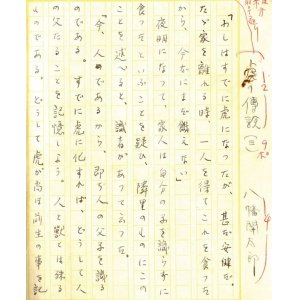 上海傳説 (三)
八幡関太郎
「わしはすでに虎になったが、甚だ安健だ。
たゞ家を離れる時、一人を得てこれを食った
から、今なにまだ餓えない」
夜明になって、家人は自分の子を識らずに
食ったといふことを疑ひ、隣里のものにこの
ことを述べると、識者があって云った。
「今、人のであるから、即ち人の父子を識る
のである。すでに虎に化すれば、どうして人
の父たることを記憶しよう。人と獣とは殊る
ものである。どうして虎が尚ほ前生の事を記